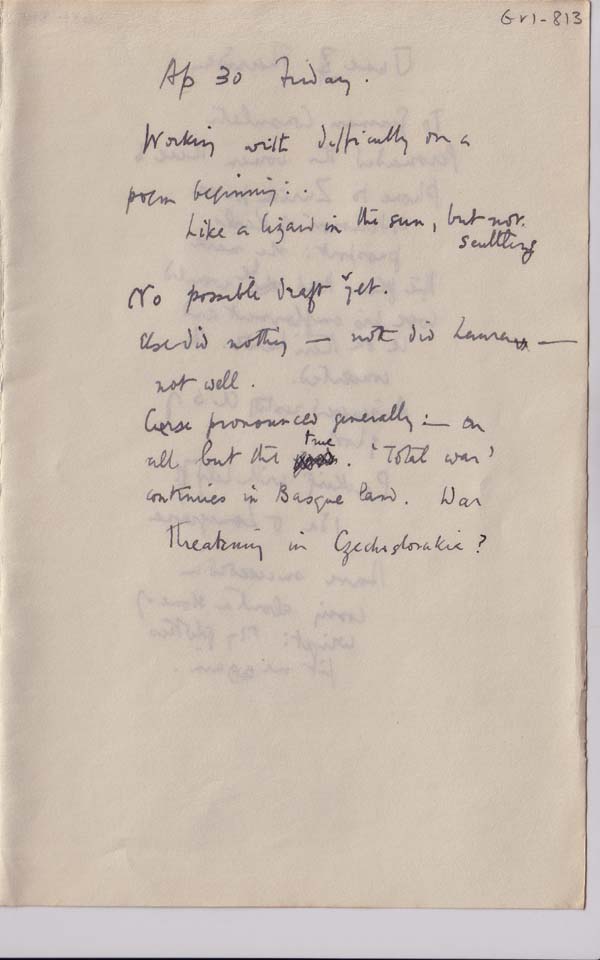 Gr1-813
Ap 30 Friday.
Working with difficulty on a
poem beginning:.
Like a lizard in the sun, but not
scuttling
No possible draft yet.
else did nothing — nor did Laura —
not well.
Curse pronounced generally :— on
all but the true. 'Total war'
continues in Basque land. War
threatening in Czechoslovakia?